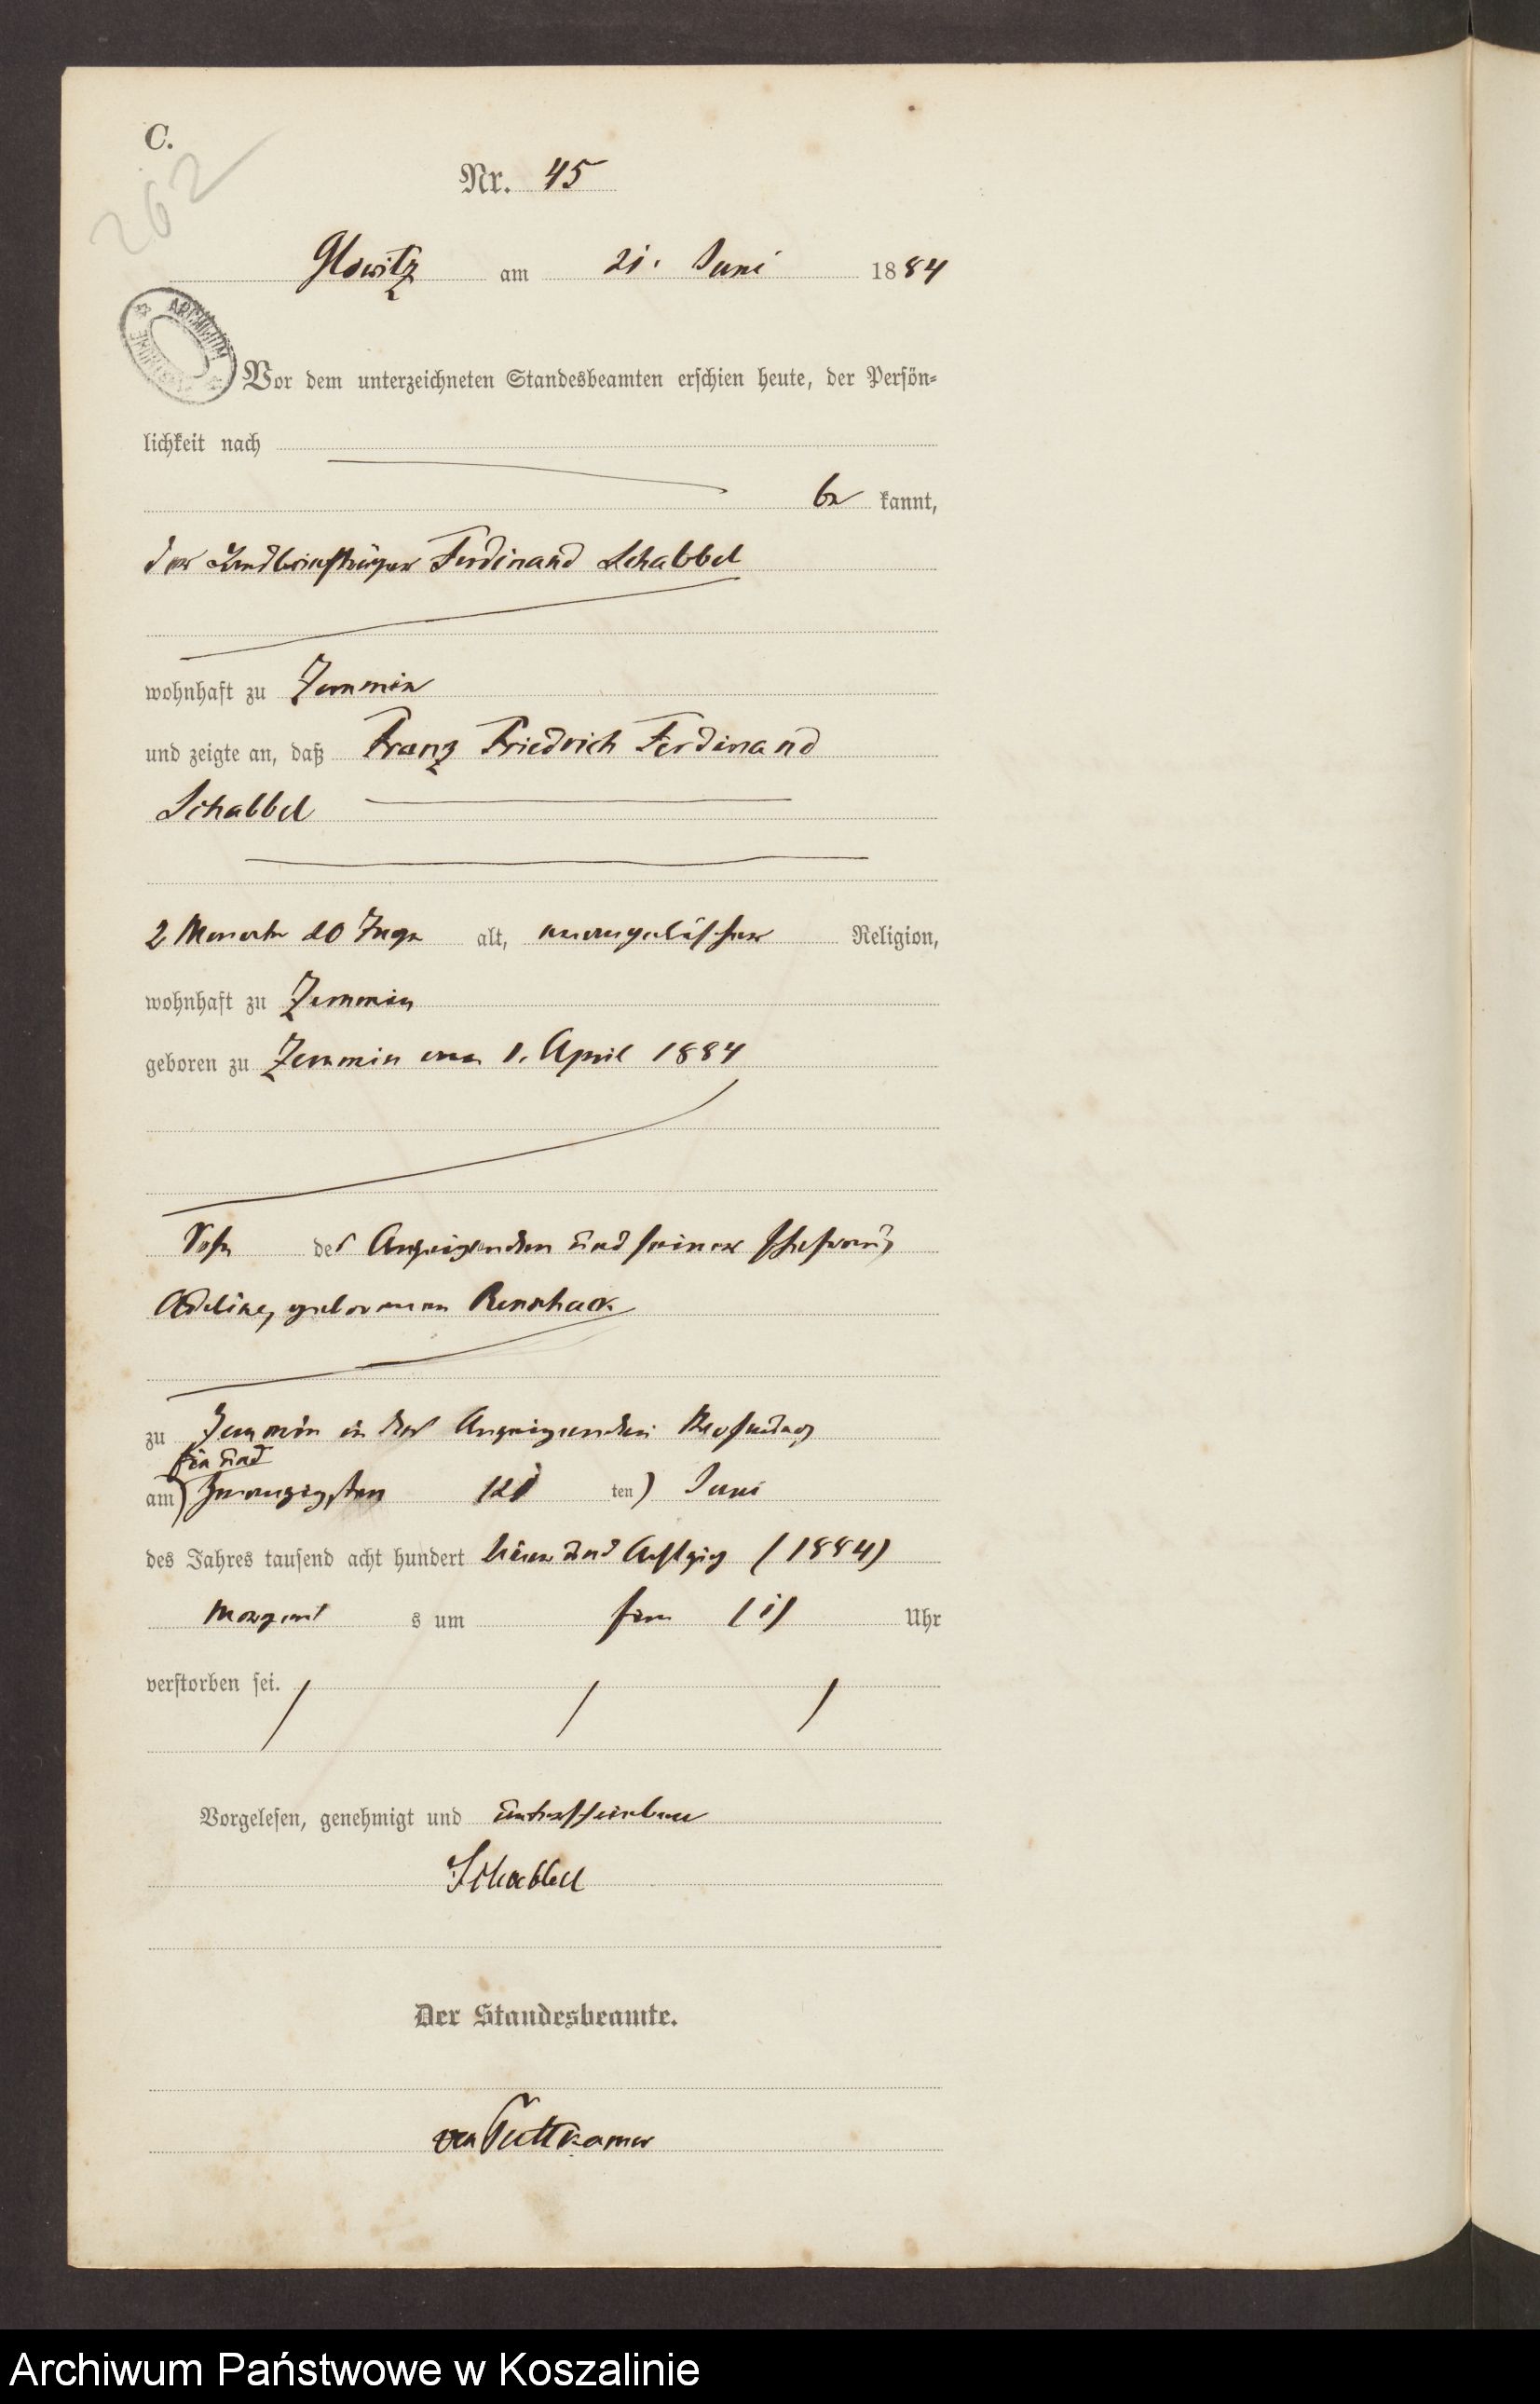 C.
262
Nr. 45
Glowitz am 21. Juni 1884
ARCHIWUM
Vor dem unterzeichneten Standesbeamten erschien heute, der Persön-
lichkeit nach
be kannt,
der Landbriefträger Ferdinand Schabbel
wohnhaft zu Zemmin
und zeigte an, daß Franz Friedrich Ferdinand
Schabbel
2 Monate 20 Tage alt, evangelischer Religion,
wohnhaft zu Zemmin
geboren zu Zemmin am 1. April 1884
Sohn des Anzeigenden und seiner Ehefrau
Adeline, geborenen
zu Zemmin in des Anzeigenden Behausung
ein und
am zwanzigsten (21 ten) Juni
des Jahres tausend acht hundert vier und achtzig (1884)
Morgens s um ein (1) Uhr
verstorben sei.
Vorgelesen, genehmigt und unterschrieben
Schabbel
Der Standesbeamte.
von Puttkamer
Archiwum Państwowe w Koszalinie